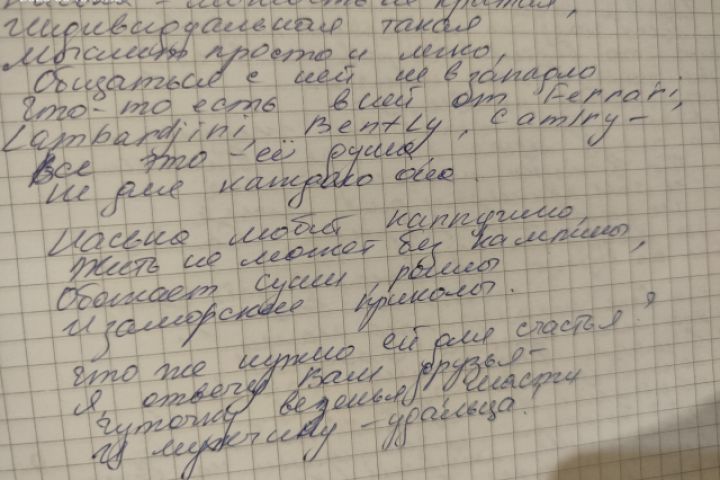 индивидуальная такая,
мыслит просто и легко,
Общаться с ней не в западло
Что-то есть в ней от Ferrari,
Lambardjini, Bently, Camry -
Все это - её душа
не для каждого она.
любит каппучино,
Жить не может без
Обожает суши, роллы
И заморские приколы.
Что же нужно ей для счастья?
Я отвечу Вам друзья -
Чуточку везенья, страсти
И мужчину - удальца.